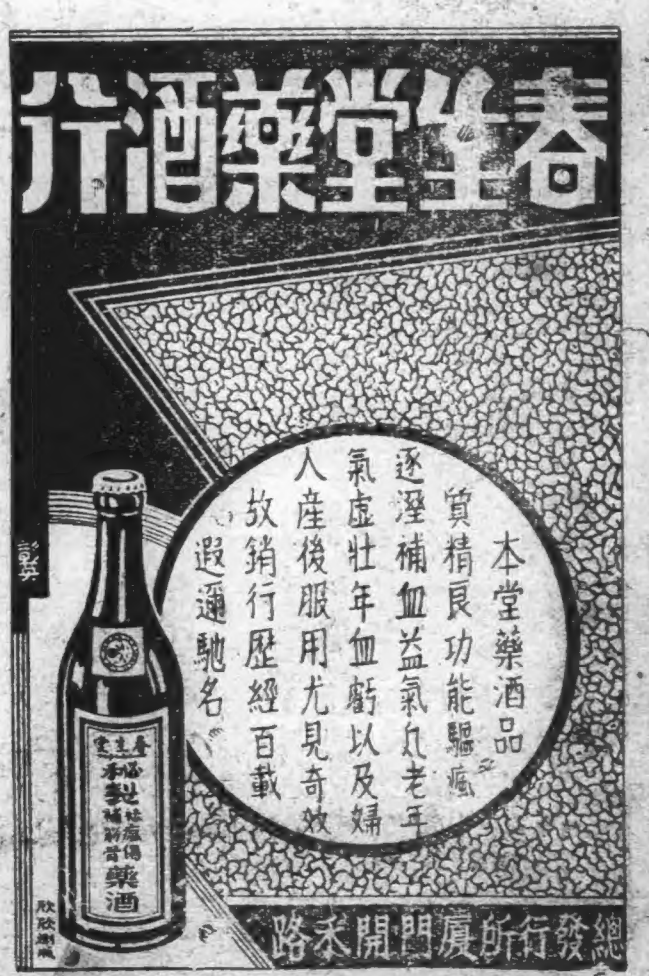 春生堂藥酒行
本堂藥酒品
質精良功能驅瘋
逐溼補血益氣凡老年
氣虛壯年血虧以及婦
人產後服用尤見奇效
故銷行歷經百載
遐邇馳名
春生堂
秘製
本
祛瘋傷
補筋骨
藥酒
總發行所廈門開禾路